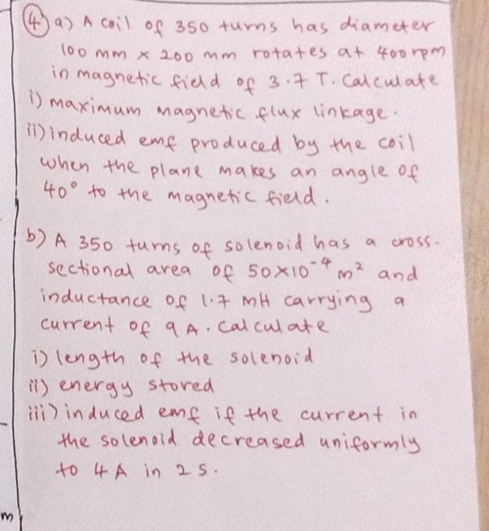 4 a) A coil of 350 turns has diameter
100 mm x 200 mm rotates at 400 rpm
in magnetic field of 3.7 T. Calculate
i) maximum magnetic flux linkage.
ii) induced emf produced by the coil
when the plane makes an angle of
40° to the magnetic field.
b) A 350 turns of solenoid has a cross-
sectional area of 50×10⁻⁴ m² and
inductance of 1.7 mH carrying a
current of 9 A. Calculate
i) length of the solenoid
ii) energy stored
iii) induced emf if the current in
the solenoid decreased uniformly
to 4 A in 2 s.
m